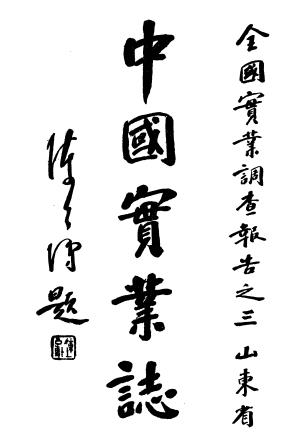 全國實業調查報告之三 山東省
中國實業誌
陳公博題